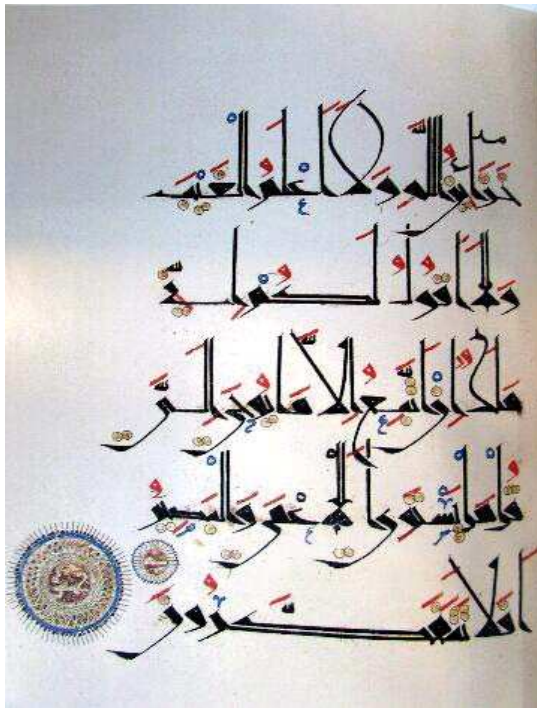 خَزَائِنُ اللَّهِ وَلَا أَعْلَمُ الْغَيْبَ
وَلَا أَقُولُ لَكُمْ إِنِّي
مَلَكٌ إِنْ أَتَّبِعُ إِلَّا مَا يُوحَى إِلَيَّ
قُلْ هَلْ يَسْتَوِي الْأَعْمَى وَالْبَصِيرُ
أَفَلَا تَتَفَكَّرُونَ